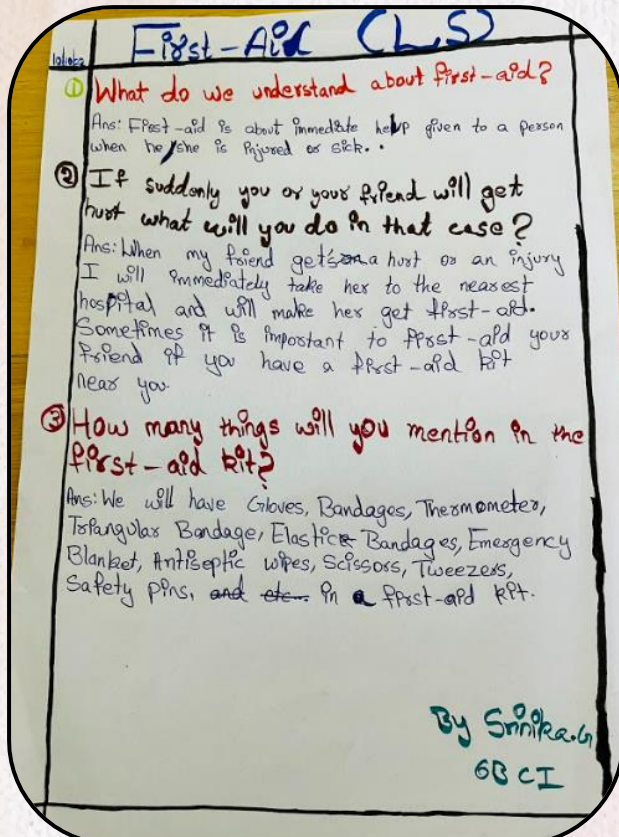 First-Aid (L.S)
① What do we understand about first-aid?
Ans: First-aid is about immediate help given to a person
when he/she is injured or sick..
② If suddenly you or your friend will get
hurt what will you do in that case?
Ans: When my friend get's a hurt or an injury
I will immediately take her to the nearest
hospital and will make her get first-aid.
Sometimes it is important to first-aid your
friend if you have a first-aid kit
near you.
③ How many things will you mention in the
first-aid kit?
Ans: We will have Gloves, Bandages, Thermometer,
Triangular Bandage, Elastic Bandages, Emergency
Blanket, Antiseptic wipes, Scissors, Tweezers,
Safety pins, and etc... in a first-aid kit.
By Srinika.G
6B CI